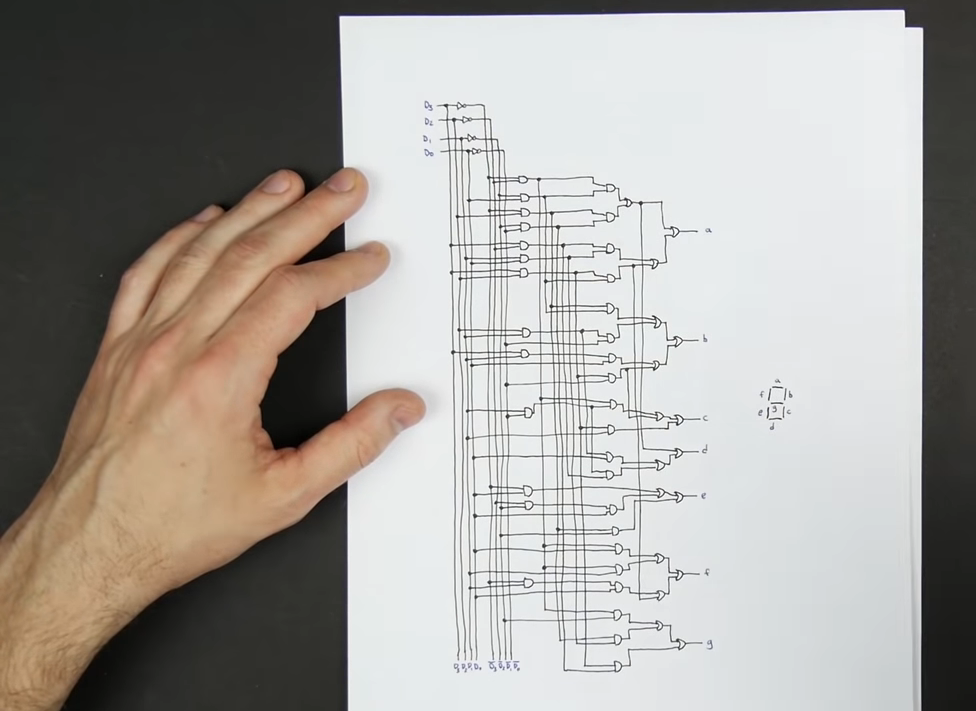 D₃
D₂
D₁
D₀
a
b
c
d
e
f
g
a
f b
g
e c
d
D₃ D₂ D₁ D₀ D̅₃ D̅₂ D̅₁ D̅₀